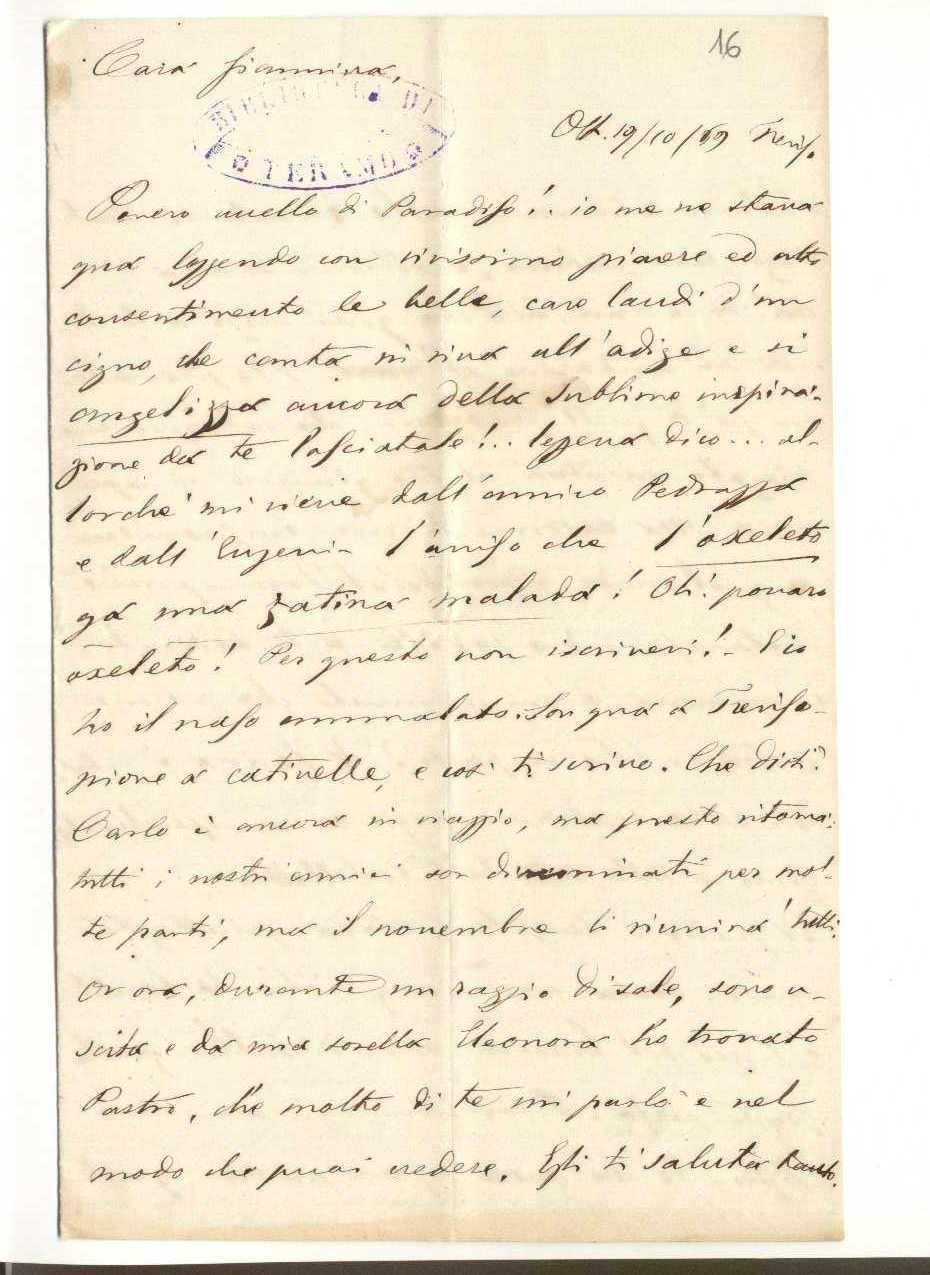 16
Cara Giannina,
BIBLIOTECA DI
TERAMO
Ott. 19/10/69 Treviso
Povero uccello di Paradiso! .. io me ne stava
qua leggendo con vivissimo piacere ed alto
consentimento le belle, care laudi d'un
cigno, che canta in riva all'adige e si
angelizza ancora della sublime inspira-
zione da te lasciatale!.. leggeva dico... al-
lorchè mi viene dall'amico Pedrazza
e dall'Eugeni- l'aviso che l'oxeleto
gà una zatina malada! Oh! povaro
oxeleto! Per questo non iscrivevi!- E io
ho il naso ammalato. Son qua a Treviso-
piove a catinelle, e così ti scrivo. Che disti?
Carlo è ancora in viaggio, ma presto ritorna:
tutti i nostri amici son disseminati per mol-
te parti, ma il novembre li riunirà tutti.
Or ora, durante un raggio di sole, sono u-
scita e da mia sorella Eleonora ho trovato
Pastro, che molto di te mi parlò e nel
modo che puoi credere. Egli ti saluta tanto.